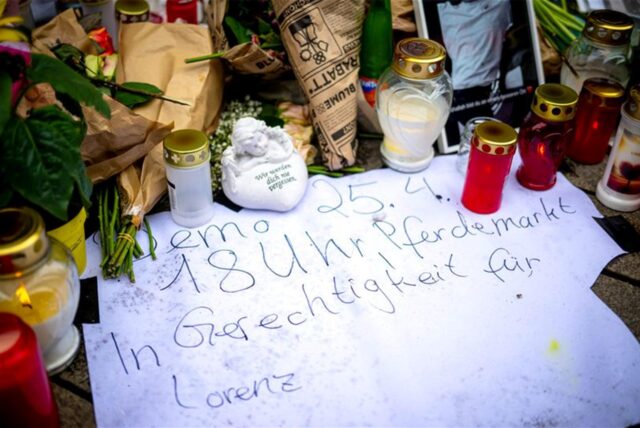 Wir werden
dich nie
vergessen.
BLUME
RABATT
Demo 25.4.
18 Uhr Pferdemarkt
In Gerechtigkeit für
Lorenz